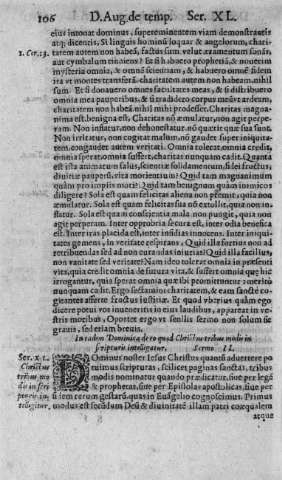 106 D. Aug. de temp. Ser. XL.
eius intonat dominus, supereminentem viam demonstratis
atq; dicentis, Si linguis hominū loquar & angelorum, chari-
1. Cor. 13. tatem autem non habeā, factus sum velut æramentum sonās
aut cymbalum tinniens? Et si habuero prophetiā, & nouerim
mysteria omnia, & omnē scientiam, & habuero omnē fidem
ita vt montes transferā, charitatem autem non habeam, nihil
sum. Et si donauero omnes facultates meas, & si distribuero
omnia mea pauperibus, & si tradidero corpus meū vt ardeam,
charitatem non habeā, nihil mihi prodesset. Charitas magna-
nima est, benigna est, Charitas nō æmulatur, non agit perpe-
ram. Non inflatur, non dehonestatur, nō quærit quæ sua sunt.
Non irritatur, non cogitat malum, nō gaudet super iniquita-
tem, congaudet autem veritati. Omnia tolerat, omnia credit,
omnia sperat, omnia suffert, charitas nunquam cadit. Quanta
est ista animarum salus, scientiæ solidamentum, fidei fructus,
diuitiæ pauperū, vita morientium? Quid tam magnanimum
quàm pro impiis mori? Quid tam benignum quàm inimicos
diligere? Sola est quam felicitas aliena non premit, quia non
æmulatur. Sola est quam felicitas sua nō extollit, quia non in-
flatur. Sola est quam conscientia mala non pungit, quia non
agit perperam. Inter opprobria secura est, inter odia benefica
est. Inter iras placida est, inter insidias innocens. Inter iniqui-
tates gemens, In veritate respirans. Quid illa fortius non ad
retribuendas sed ad non curandas iniurias? Quid illa fidelius,
non vanitati sed veritati? Nam ideo tolerat omnia in præsenti
vita, quia credit omnia de futura vita, & suffert omnia quæ hic
irrogantur, quia sperat omnia quæ ibi promittuntur: meritò
nunquam cadit. Ergo sectamini charitatem, & eam sanctè co-
gitantes afferte fructus iustitiæ. Et quod vberius quàm ego
dicere potui vos inueneritis in eius laudibus, appareat in ve-
stris moribus. Oportet ergo vt senilis sermo non solùm sit
grauis, sed etiam breuis.
In eadem Dominica de eo quod Christus tribus modis in
scripturis intelligatur. Sermo LI.
Ser. XLI. DOminus noster Iesus Christus quantū aduertere po-
Christus tuimus scripturas, scilicet paginas sanctas, tribus
tribus mo modis nominatur quando prædicatur, siue per legē
dis in scri & prophetas, siue per Epistolas apostolicas, siue per
fidem rerum gestarū, quas in Euāgelio cognoscimus. Primus
modus est secūdùm Deū & diuinitatē illam patri coæqualem
atque